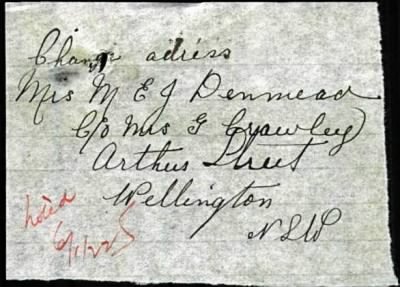 Change adress
Mrs M E J Denmead
C/o Mrs G Crawley
Arthur Street
Wellington
NSW
noted
6/1/22